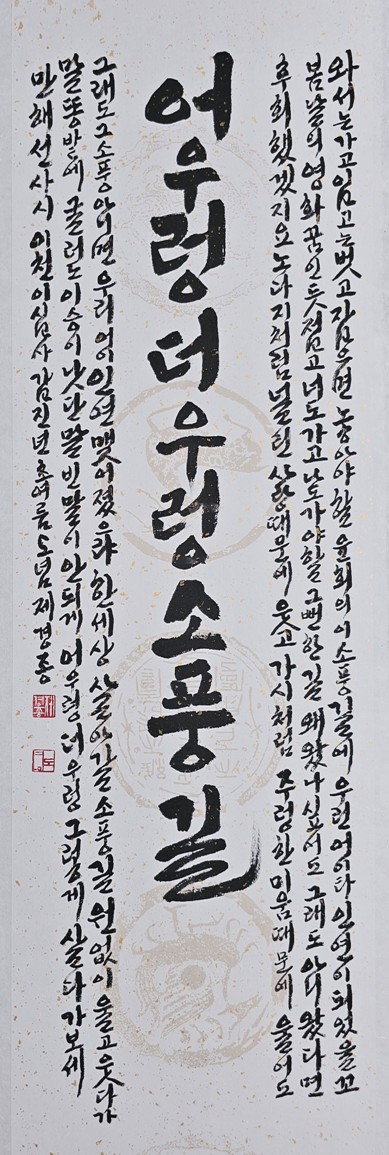 와서는 가고 입고는 벗고 잡으면 놓아야 할 윤회의 이 소풍길에 우린 어이타 인연이 되었을꼬
봄날의 영화 꿈인 듯 접고 너도 가고 나도 가야할 그 뻔한 길 왜 왔나 싶어도 그래도 아니 왔다면
후회했겠지요 노다지처럼 널린 사랑때문에 웃고 가시처럼 주렁한 미움때문에 울어도
어우렁더우렁소풍길
그래도 그 소풍 아니면 우리 어이 인연 맺어졌으랴 한세상 살다 갈 소풍길 원없이 울고 웃다가
말똥밭에 굴러도 이승이 낫단 말 빈말이 안되게 어우렁더우렁 그렇게 살다가보세
만해선사시 이천이십사 갑진년 초여름 도념 제경종